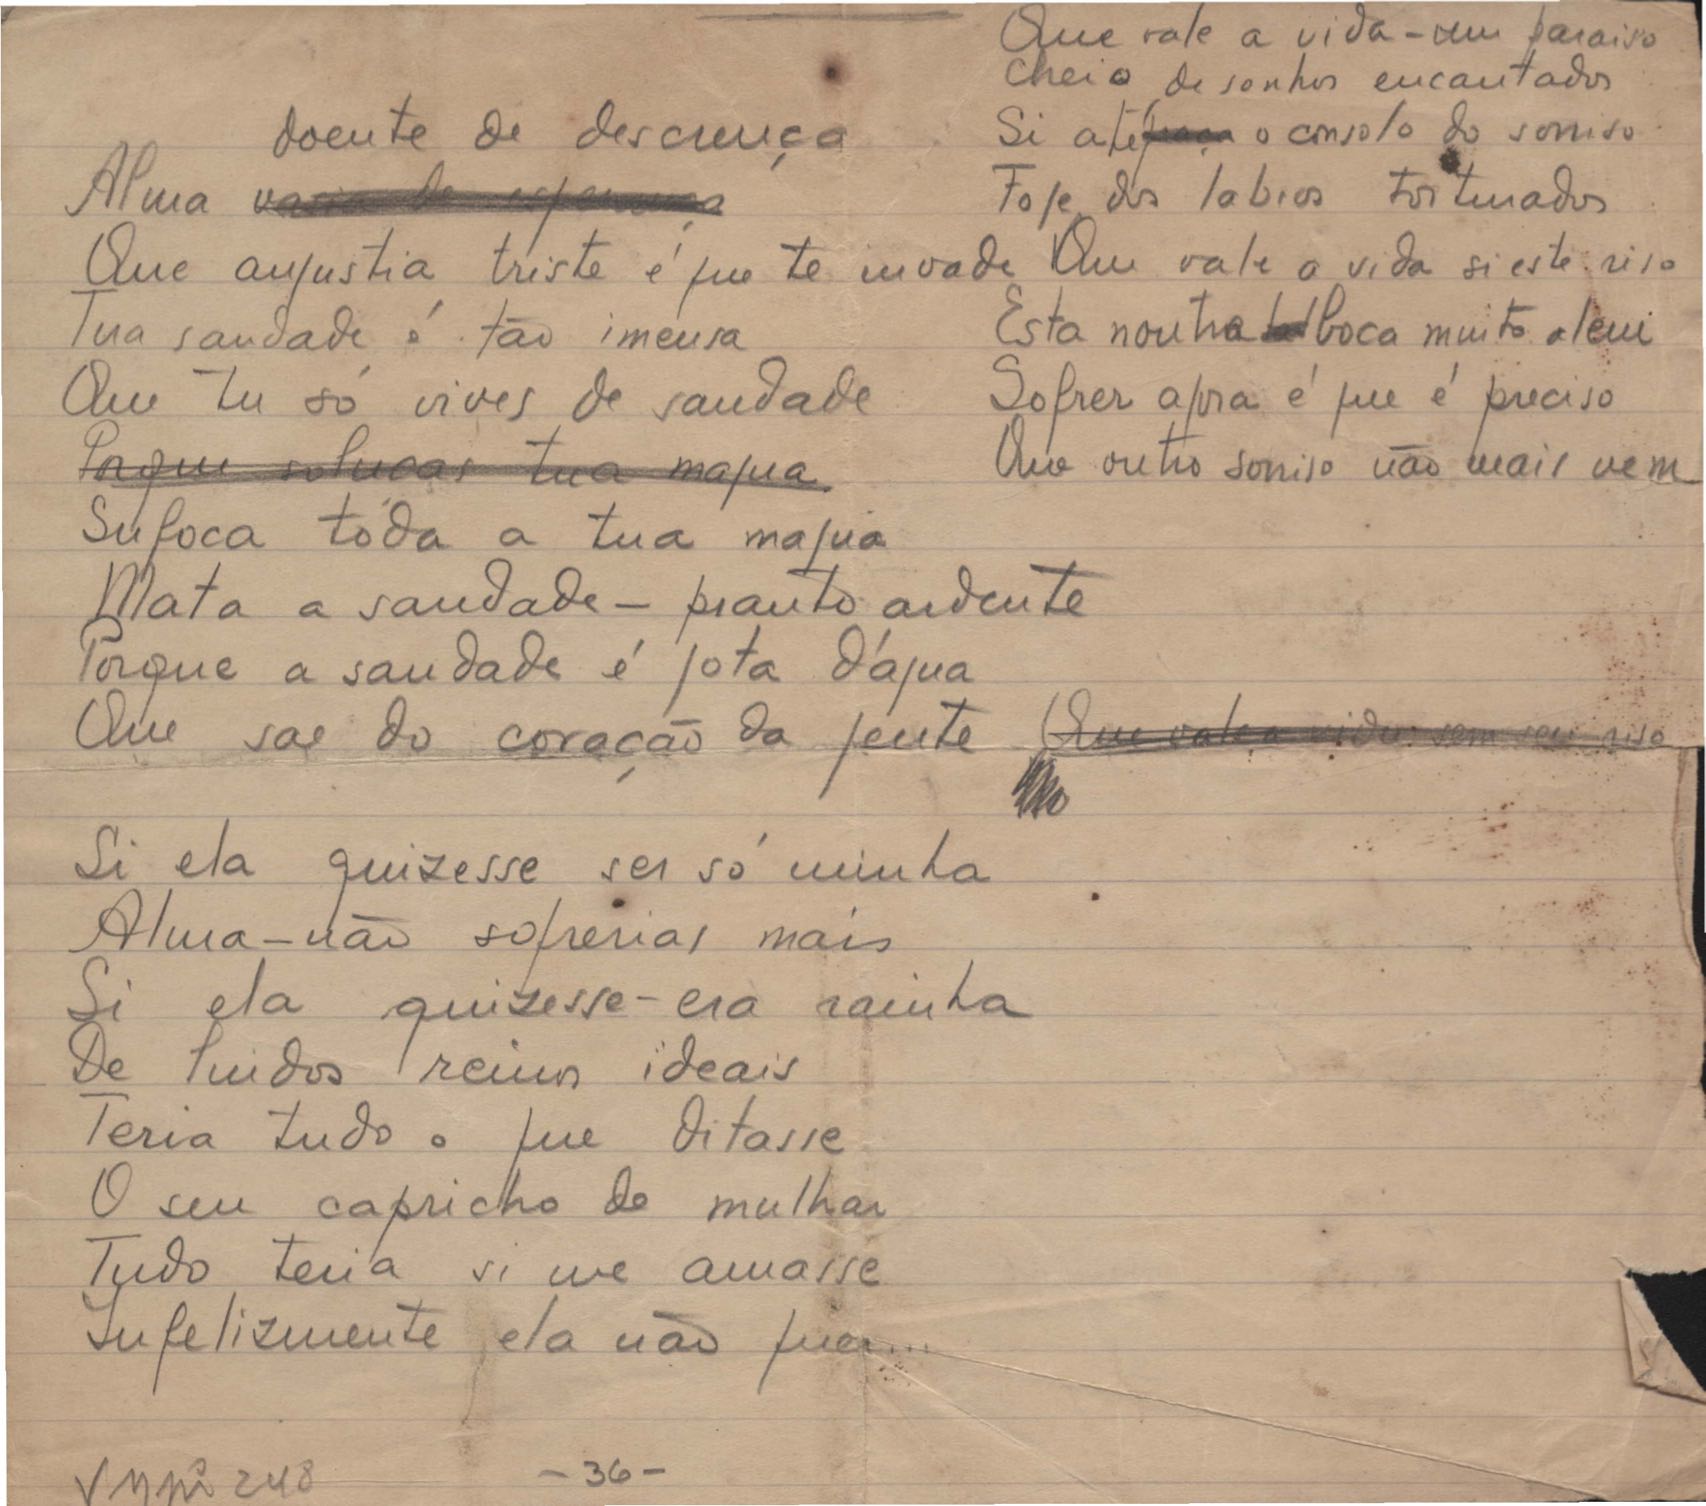 doente de descrença
Alma vazia de esperança
Que angustia triste é que te invade
Tua saudade é tão imensa
Que tu só vives de saudade
Porque soluças tua magua
Sufoca tóda a tua magua
Mata a saudade – pranto ardente
Porque a saudade é gota d'água
Que sae do coração da gente
Si ela quizesse ser só minha
Alma – não sofrerias mais
Si ela quizesse – era rainha
De lindos reinos ideais
Teria tudo o que ditasse
O seu capricho de mulher
Tudo teria si me amasse
Infelizmente ela não quer...
Que vale a vida – um paraiso
Cheio de sonhos encantados
Si até o consolo do sorriso
Foje dos labios torturados
Que vale a vida si este riso
Esta noutra boca muito alem
Sofrer agora é que é preciso
Que outro sorriso não mais vem
Que vale a vida sem seu riso
248
- 36 -